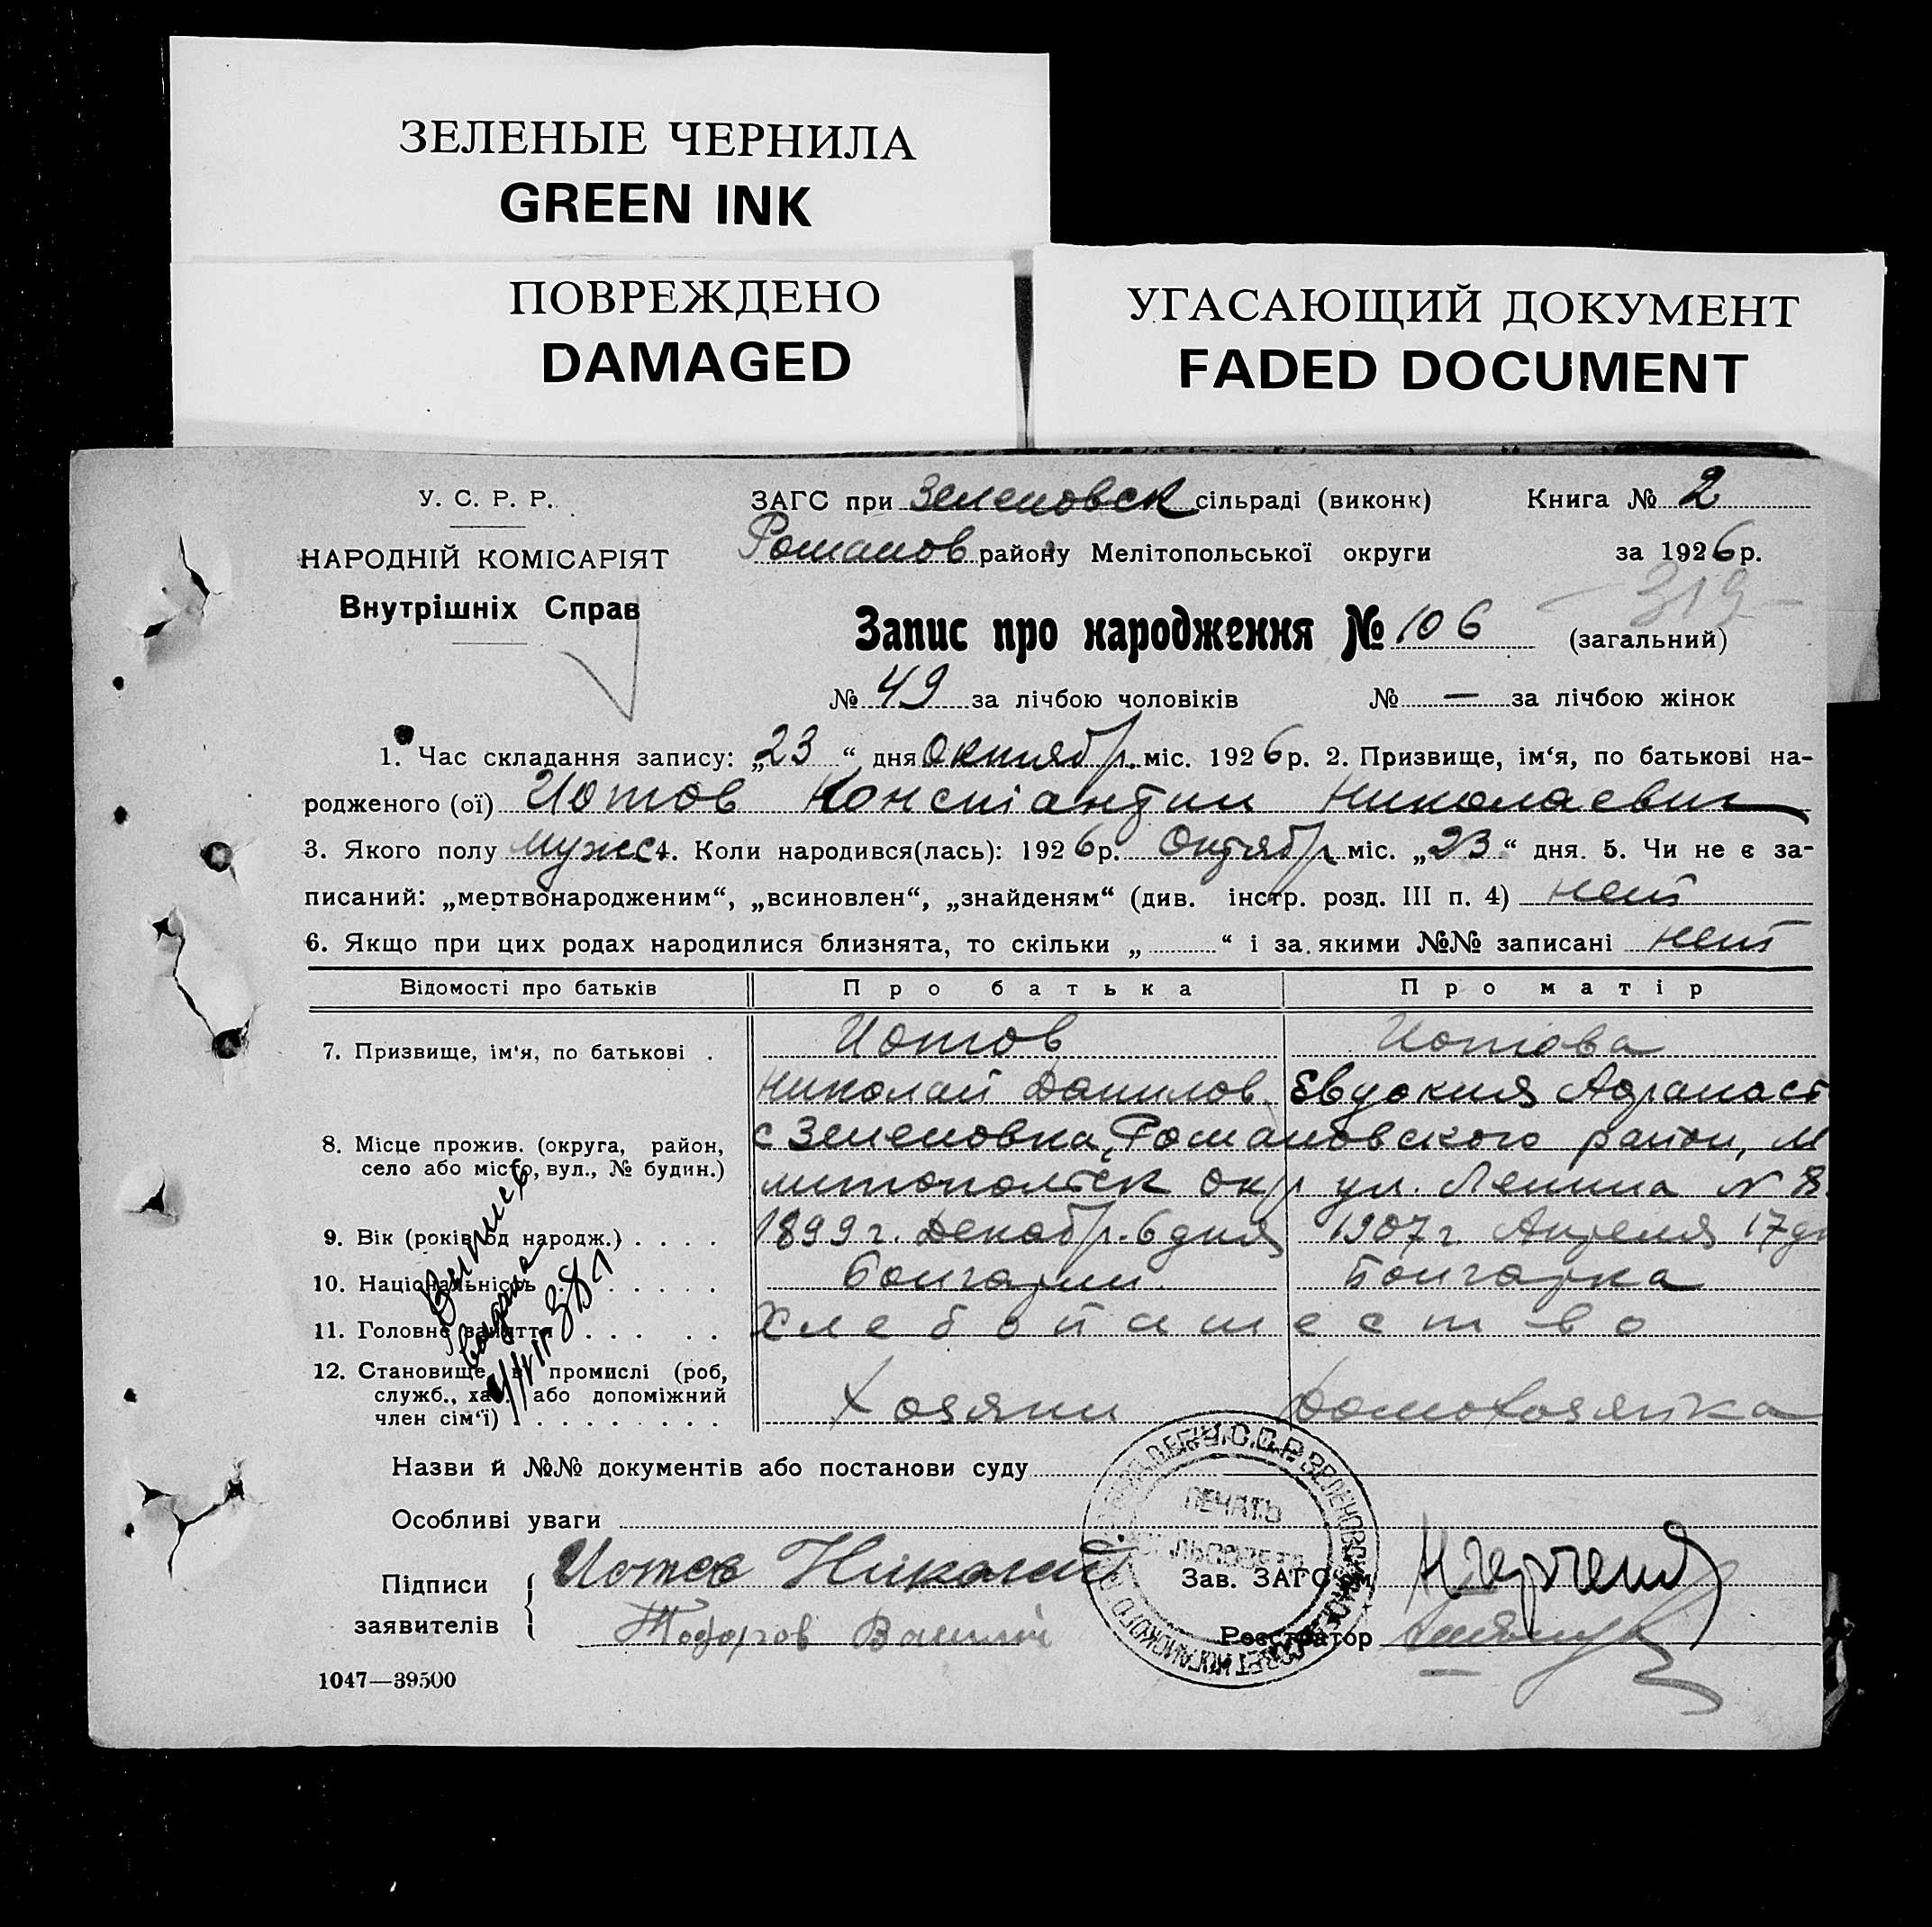 ЗЕЛЕНЫЕ ЧЕРНИЛА
GREEN INK
ПОВРЕЖДЕНО
DAMAGED
УГАСАЮЩИЙ ДОКУМЕНТ
FADED DOCUMENT
У. С. Р. Р.
НАРОДНІЙ КОМІСАРІЯТ
Внутрішніх Справ
ЗАГС при Зеленовск сільраді (виконк) Книга № 2
Романов району Мелітопольської округи за 1926 р.
319
Запис про народження № 106 (загальний)
№ 49 за лічбою чоловіків № — за лічбою жінок
1. Час складання запису: „23“ дня Октябр. міс. 1926 р. 2. Призвище, ім‘я, по батькові на-
родженого (ої) Иотов Константин Николаевич
3. Якого полу мужс 4. Коли народився(лась): 1926 р. Октябр міс. „23“ дня. 5. Чи не є за-
писаний: „мертвонародженим“, „всиновлен“, „знайденям“ (див. інстр. розд. III п. 4) нет
6. Якщо при цих родах народилися близнята, то скільки „ “ і за якими №№ записані нет
Відомості про батьків Про батька Про матір
7. Призвище, ім‘я, по батькові . Иотов Иотова
Николай Данилов. Евдокия Афанаст
8. Місце прожив. (округа, район, с Зеленовка, Романовского район, М
село або місто, вул., № будин.) литопольск окр ул. Ленина N 8
9. Вік (років од народж.) . . . . 1899 г. Декабр. 6 дня 1907 г. Апреля 17 дн
10. Національність . . . . . Болгарин. Болгарка
11. Головне заняття . . . . . Хлебопашество
12. Становище в промислі (роб,
служб., хаз. або допоміжний
член сім‘ї) . . . . . . . . . Хозяин Домохозяйка
Выпись
выдана
38 г
Назви й №№ документів або постанови суду
Особливі уваги
ПЕЧАТЬ
СІЛЬСОВЕТА
Підписи Иотов Николай Зав. ЗАГС‘ом
заявителів Тодоров Василий Реєстратор
1047—39500